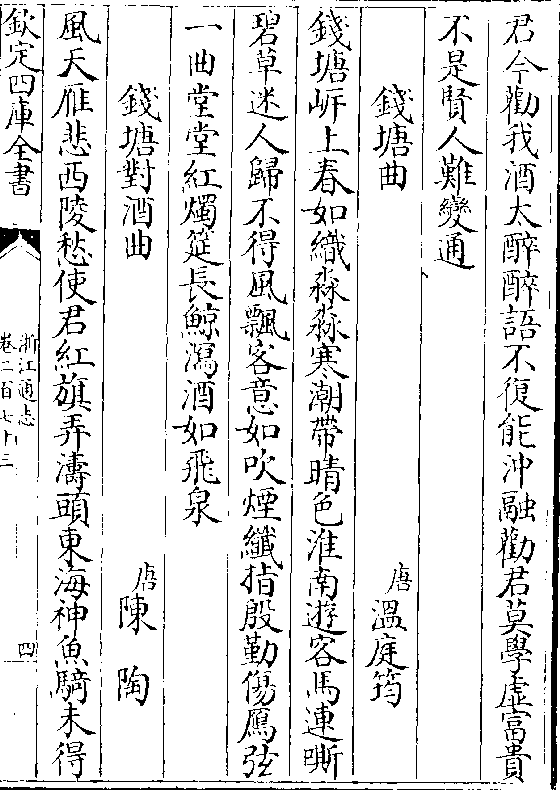 君今勸我酒太醉醉語不復能沖融勸君莫學虛富貴
不是賢人難變通
錢塘曲 唐 溫庭筠
錢塘岸上春如織淼淼寒潮帶晴色淮南遊客馬連嘶
碧草迷人歸不得風飄客意如吹煙纖指殷勤傷鴈弦
一曲堂堂紅燭筵長鯨瀉酒如飛泉
錢塘對酒曲 唐 陳陶
風天雁悲西陵愁使君紅旗弄濤頭東海神魚騎未得
欽定四庫全書
浙江通志
卷二百七十三
四